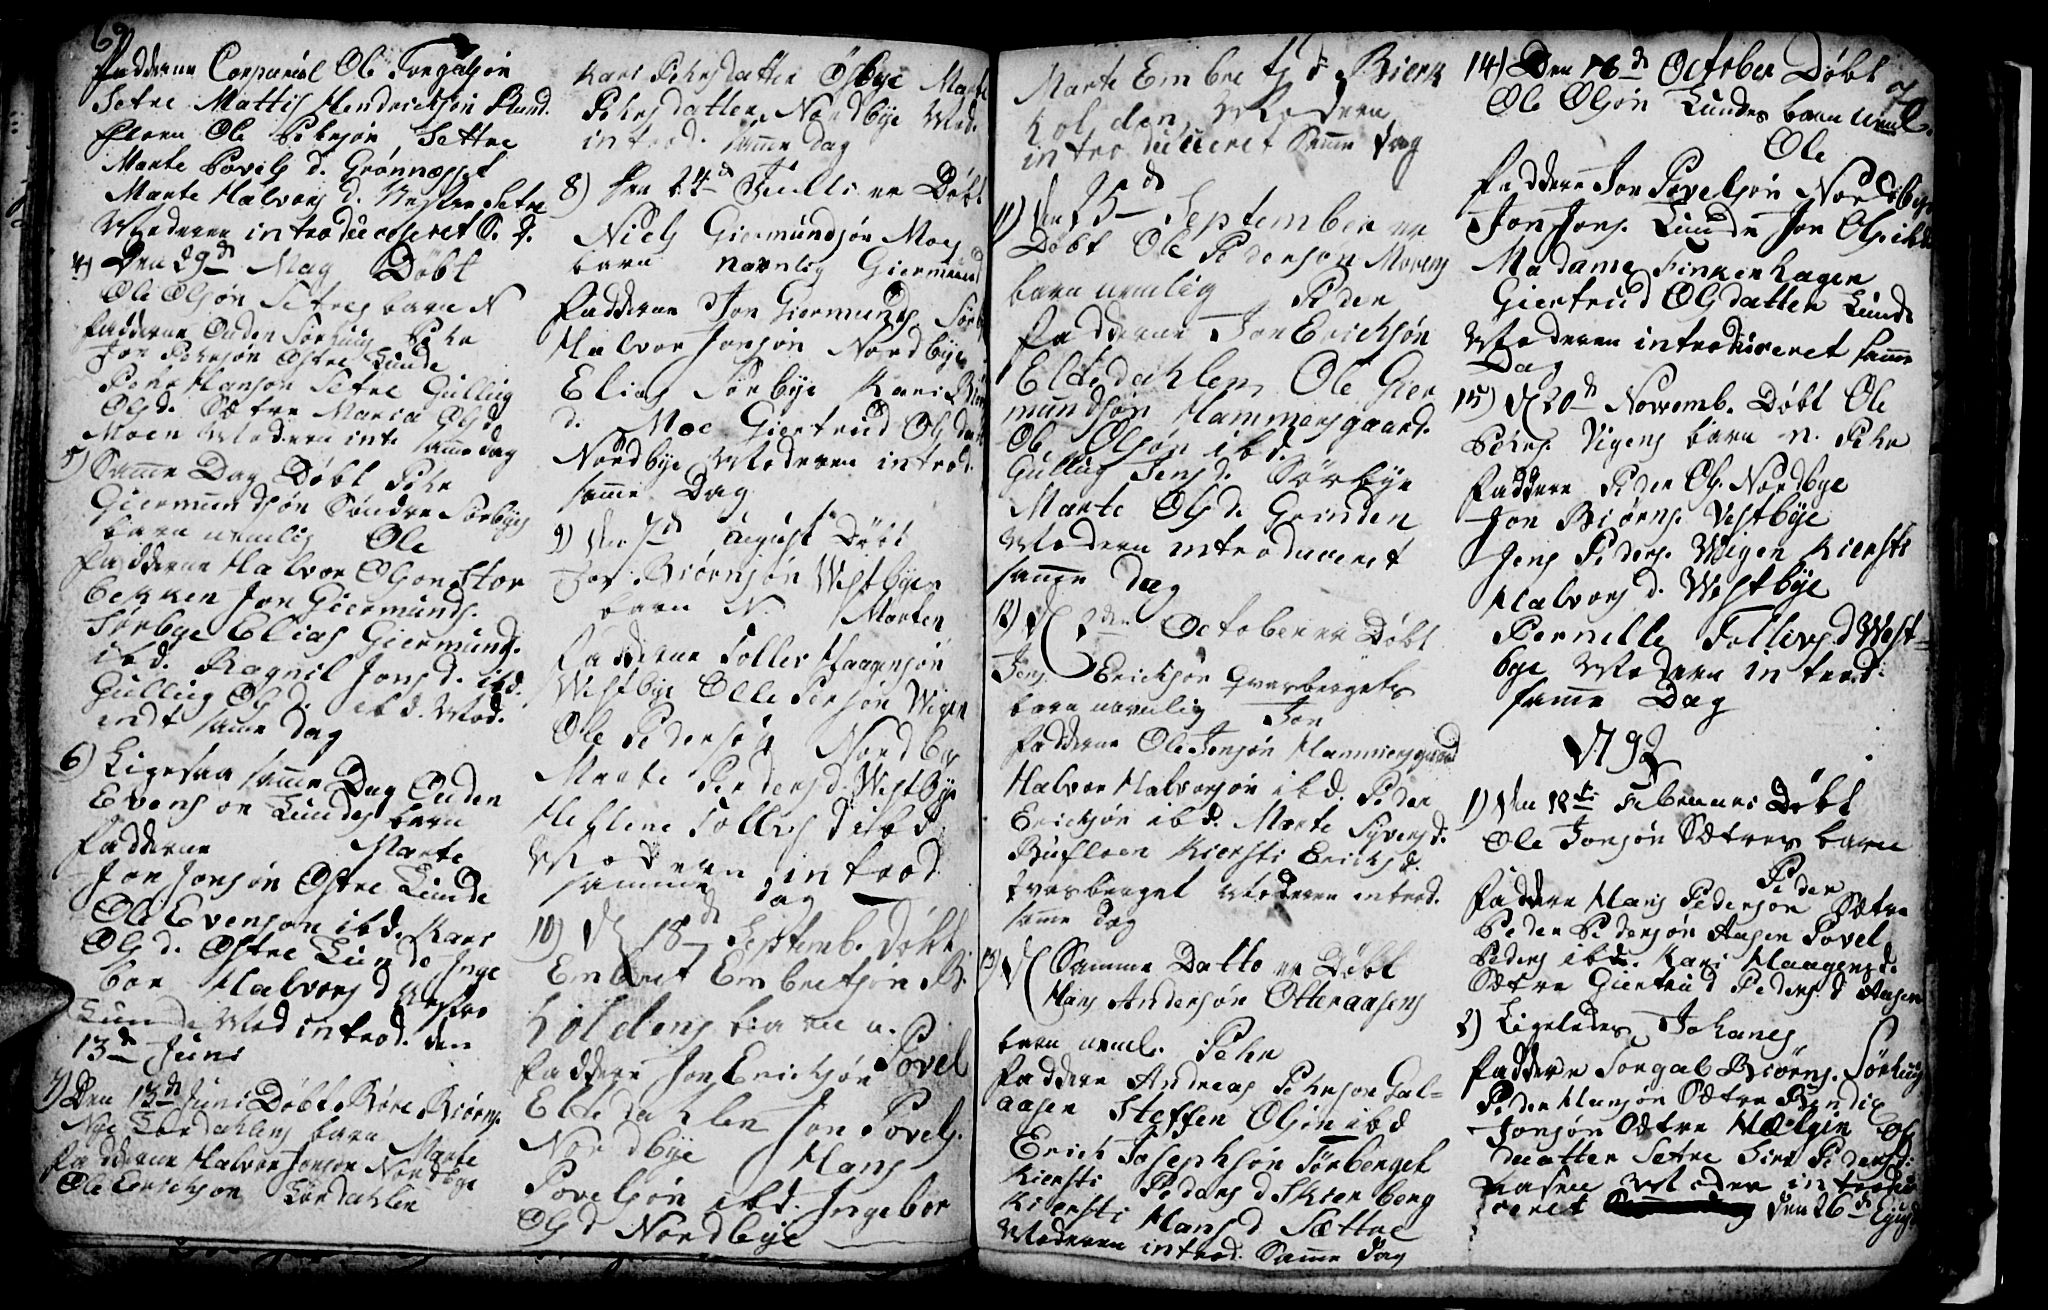 69
Fadderne Corporal Ole Torgalsøn
Setre Mattis Hendrichsøn Rund
floen Ole Pehrsøn Settre
Marte Povels d. Grønnæsset
Marte Halvors d. Vestre Setre
Moderen introduceret S. D.
4) Den 29de May Døbt
Ole Olsøn Setres barn N
Fadderne Ouden Sørhuus Pehr
Jon Pehrsøn Østre Lunde
Pehr Hansøn Setre Gulling
Ols d. Sætre Maria Ols d.
Moen Moderen int. samme dag
5) Samme Dag Døbt Pehr
Giermundsøn Søndre Sørbyes
barn nemlig Ole
Fadderne Halvor Olsøn Stor
bekken Jon Giermunds.
Sørbye Elias Giermunds.
ibd. Ragnil Jons d. ibd.
Gulling Ols d. ibd. Mod.
indt samme dag
6) Ligesaa samme Dag Ouden
Evensøn Lundes barn
Fadderne Marte
Jon Jonsøn Østre Lunde
Ole Evensøn ibd. Kari
Ols d. Østre Lunde Inge
bor Halvors d. Østre
Lunde Mod introd. den
13de Juni
7) Den 13de Juni Døbt Børe Biørns.
Nye Lørdahlens barn
Fadderne Halvor Jonsøn Nordbye Marte
Ole Ericksøn Lørdahlen
Kari Pehrsdatter Østbye Marte
Pehrsdatter Nordbye Mod.
introd. samme dag
8) Den 24de Julli er Døbt
Niels Giermundsøn Moes
barn navnlig Giermund
Fadderne Jon Giermunds. Sørb.
Halvor Jonsøn Nordbye
Elias Sørbye Kari Biørn
d. Moe Giertrud Ols datt
Nordbye Moderen introd.
samme Dag
9) Den 7de August Døbt
Jon Biørnsøn Westbyes
barn N. Morten
Fadderne Tollev Haagensøn
Westbye Olle Persøn Wigen
Ole Pedersøn Nordby
Marte Peders d. Westbye
Hellene Tollevs d. ibd
Moderen introd
samme dag
10) D. 18de Septemb. Døbt
Embret Embretsøn B.
Koldens barn n.
Faddere Jon Ericksøn Povel
Eltedahlen Jon Povels.
Nordbye Hans
Povelsøn ibd. Ingebor
Ols d Nordbye
Marte Embrets d. Bierk
kolden, Moderen
introduceret Samme dag
11) Den 25de September er
Døbt Ole Pedersøn Morens
barn nemlig Peder
Fadderne Jon Ericksøn
Eltedahlen, Ole Gier
mundsøn Hammersgaard.
Ole Olsøn ibd.
Gulling Jens d. Sørbye
Marte Ols d. Grinden
Moderen introduceret
samme Dag
12) D. 2den October er Døbt
Jens Ericksøn Qvarbergets
barn navnlig Jon
Fadderne Ole Jensøn Hammersgaard
Halvor Halvorsøn ibd. Peder
Ericksøn ibd. Marte Syvers d.
Bufloen Kiersti Ericks d.
Qvarberget Moderen introd.
samme dag
13) D. Samme Datto er Døbt
Hans Andersøn Otteraasens
barn neml. Pehr
Faddere Andreas Pehrsøn Gal-
aasen Steffen Olsøn ibd
Erick Josephsøn Sørberget
Kiersti Peders d. Skierberg
Kiersti Hans d Sættre
Moderen introd. Samme Dag
70
14) Den 16de October Døbt
Ole Olsøn Lundes barn neml.
Ole
Faddere Jon Povelsøn Nordbye
Jon Jons. Lunde Jon Ols. ibd
Madame Finkenhagen
Giertrud Olsdatter Lunde
Moderen introduceret samme
Dag
15) D. 20de Novemb. Døbt Ole
Pehrs. Vigens barn n. Pehr
Faddere Peder Ols. Nordbye
Jon Biørns. Vestbye
Jens Peders. Wigen Kiersti
Halvors d. Westbye
Pernelle Tollevs d West-
bye Moderen introd:
samme Dag
1792
1) Den 12te Februari Døbt
Ole Jonsøn Sætres barn
Peder
Faddere Hans Pedersøn Sætre
Peder Pedersøn Aasen Povel
Peders ibd. Kari Haagens d.
Sætre Giertrud Peders d Aasen
2) Ligeledes Johanes
Faddere Torgal Biørns. Sørhuus
Peder Hansøn Sætre Bendic
Jonsøn Sætre Helgin Ols
datter Setre Siri Peders d:
aasen Moder introdu
ceret den 26de Ejusd